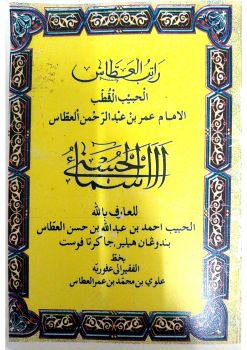 راتب العطاس
الحبيب القطب
الامام عمر بن عبد الرحمن العطاس
الأسماء الحسنى
للعارف بالله
الحبيب احمد بن عبدالله بن حسن العطاس
بندوڠان هيلير جاكرتا فوست
بخط
الفقير الى عفو ربه
علوي بن محمد بن عمر العطاس